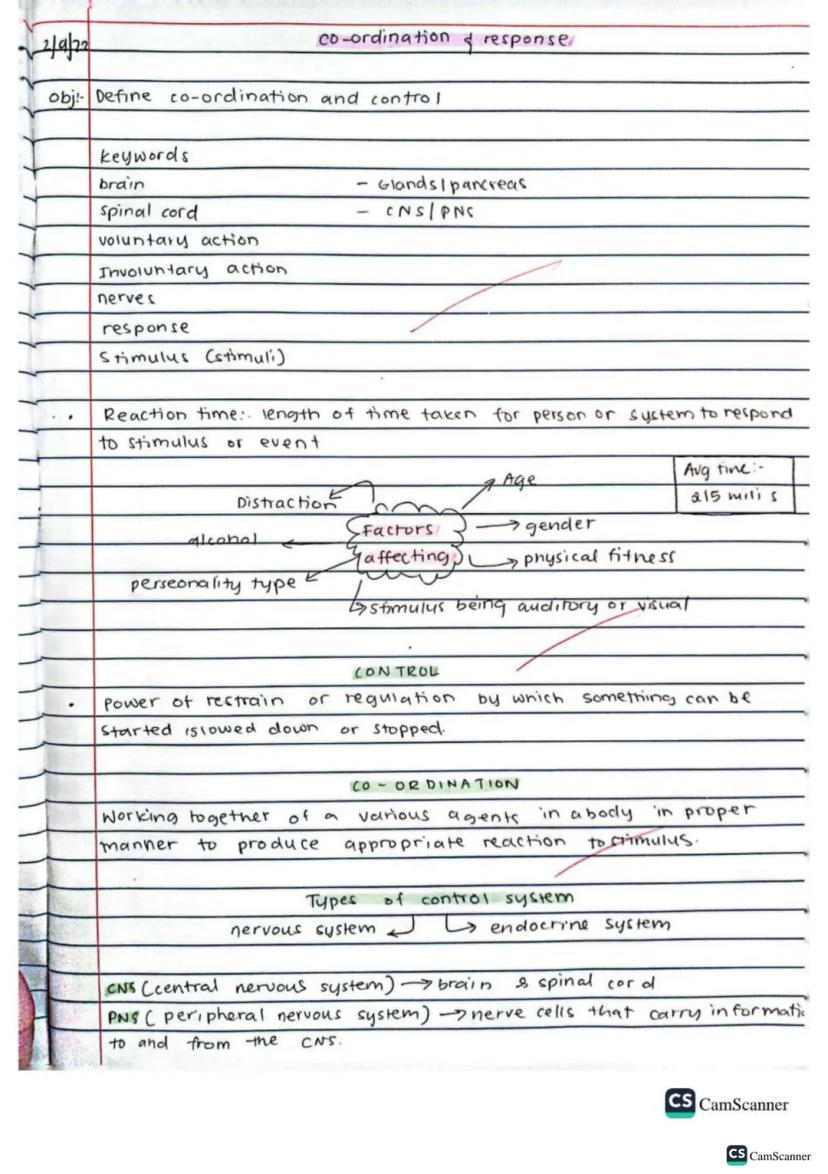 2/9/22
co-ordination & response
obj:- Define co-ordination and control
keywords
brain - Glands/pancreas
spinal cord - CNS/PNS
voluntary action
Involuntary action
nerves
response
Stimulus (stimuli)
Reaction time:- length of time taken for person or system to respond
to stimulus or event
Avg time:-
215 mili s
Age
Distraction
Factors
gender
alcohol
affecting
physical fitness
perseonality type
stimulus being auditory or visual
CONTROL
Power of restrain or regulation by which something can be
started, slowed down or stopped.
CO-ORDINATION
Working together of a various agents in a body in proper
manner to produce appropriate reaction to stimulus.
Types of control system
nervous system endocrine system
CNS (central nervous system) → brain & spinal cord
PNS (peripheral nervous system) → nerve cells that carry informatic
to and from the CNS.
CS CamScanner
CS CamScanner